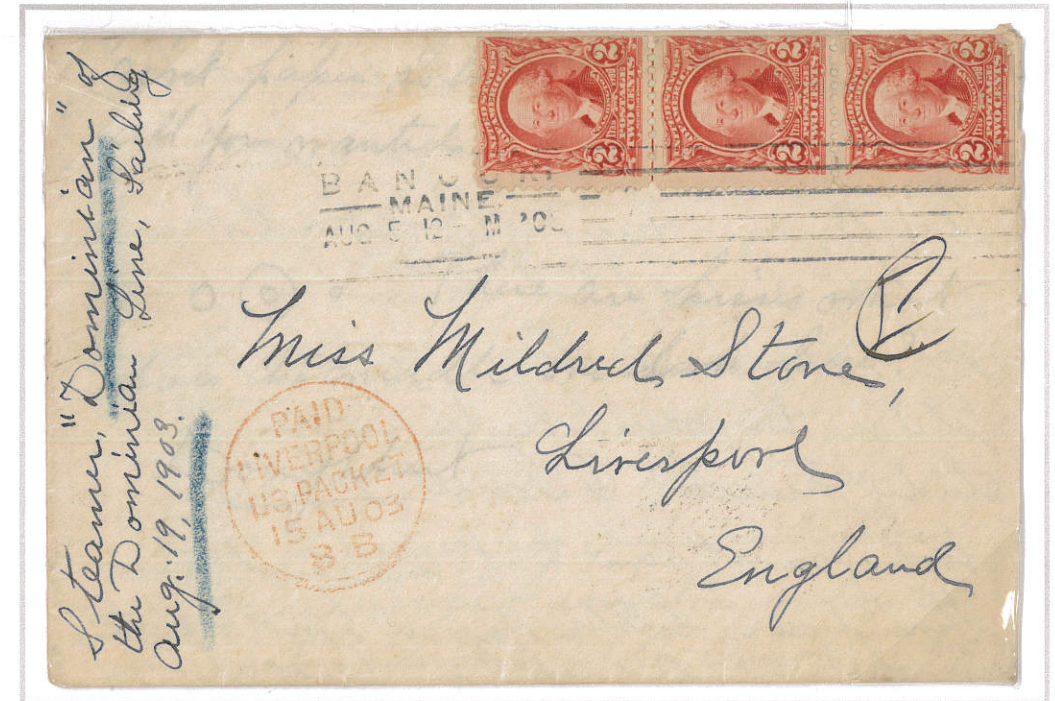 Steamer, "Dominian" of
the Dominian Line, Sailing
Aug. 19, 1903.
TWO CENTS
TWO CENTS
TWO CENTS
BANGOR
MAINE.
AUG 5 12- M '03
Miss Mildred Stone,
Liverpool
England
PAID
LIVERPOOL
U.S. PACKET
15 AU 03
8 B